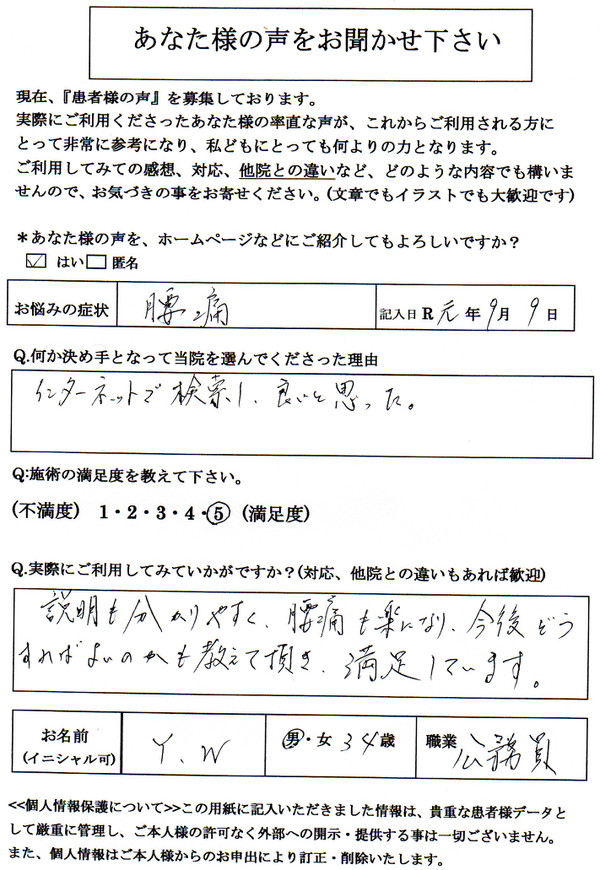 あなた様の声をお聞かせ下さい
現在、『患者様の声』を募集しております。
実際にご利用くださったあなた様の率直な声が、これからご利用される方に
とって非常に参考になり、私どもにとっても何よりの力となります。
ご利用してみての感想、対応、他院との違いなど、どのような内容でも構いま
せんので、お気づきの事をお寄せください。(文章でもイラストでも大歓迎です)
＊あなた様の声を、ホームページなどにご紹介してもよろしいですか？
☑ はい □ 匿名
お悩みの症状 腰痛 記入日 R 元 年 9 月 9 日
Q.何か決め手となって当院を選んでくださった理由
インターネットで検索し、良いと思った。
Q:施術の満足度を教えて下さい。
(不満度) 1・2・3・4・⑤ (満足度)
Q.実際にご利用してみていかがですか？(対応、他院との違いもあれば歓迎)
説明も分かりやすく、腰痛も楽になり、今後どう
すればよいのかも教えて頂き、満足しています。
お名前 Y.W 男・女 34 歳 職業 公務員
(イニシャル可)
<<個人情報保護について>>この用紙に記入いただきました情報は、貴重な患者様データと
して厳重に管理し、ご本人様の許可なく外部への開示・提供する事は一切ございません。
また、個人情報はご本人様からのお申出により訂正・削除いたします。